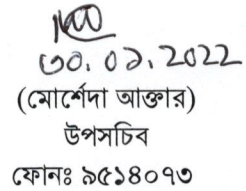 ৩০.০১.2022
(মোর্শেদা আক্তার)
উপসচিব
ফোনঃ ৯৫১৪০৭৩